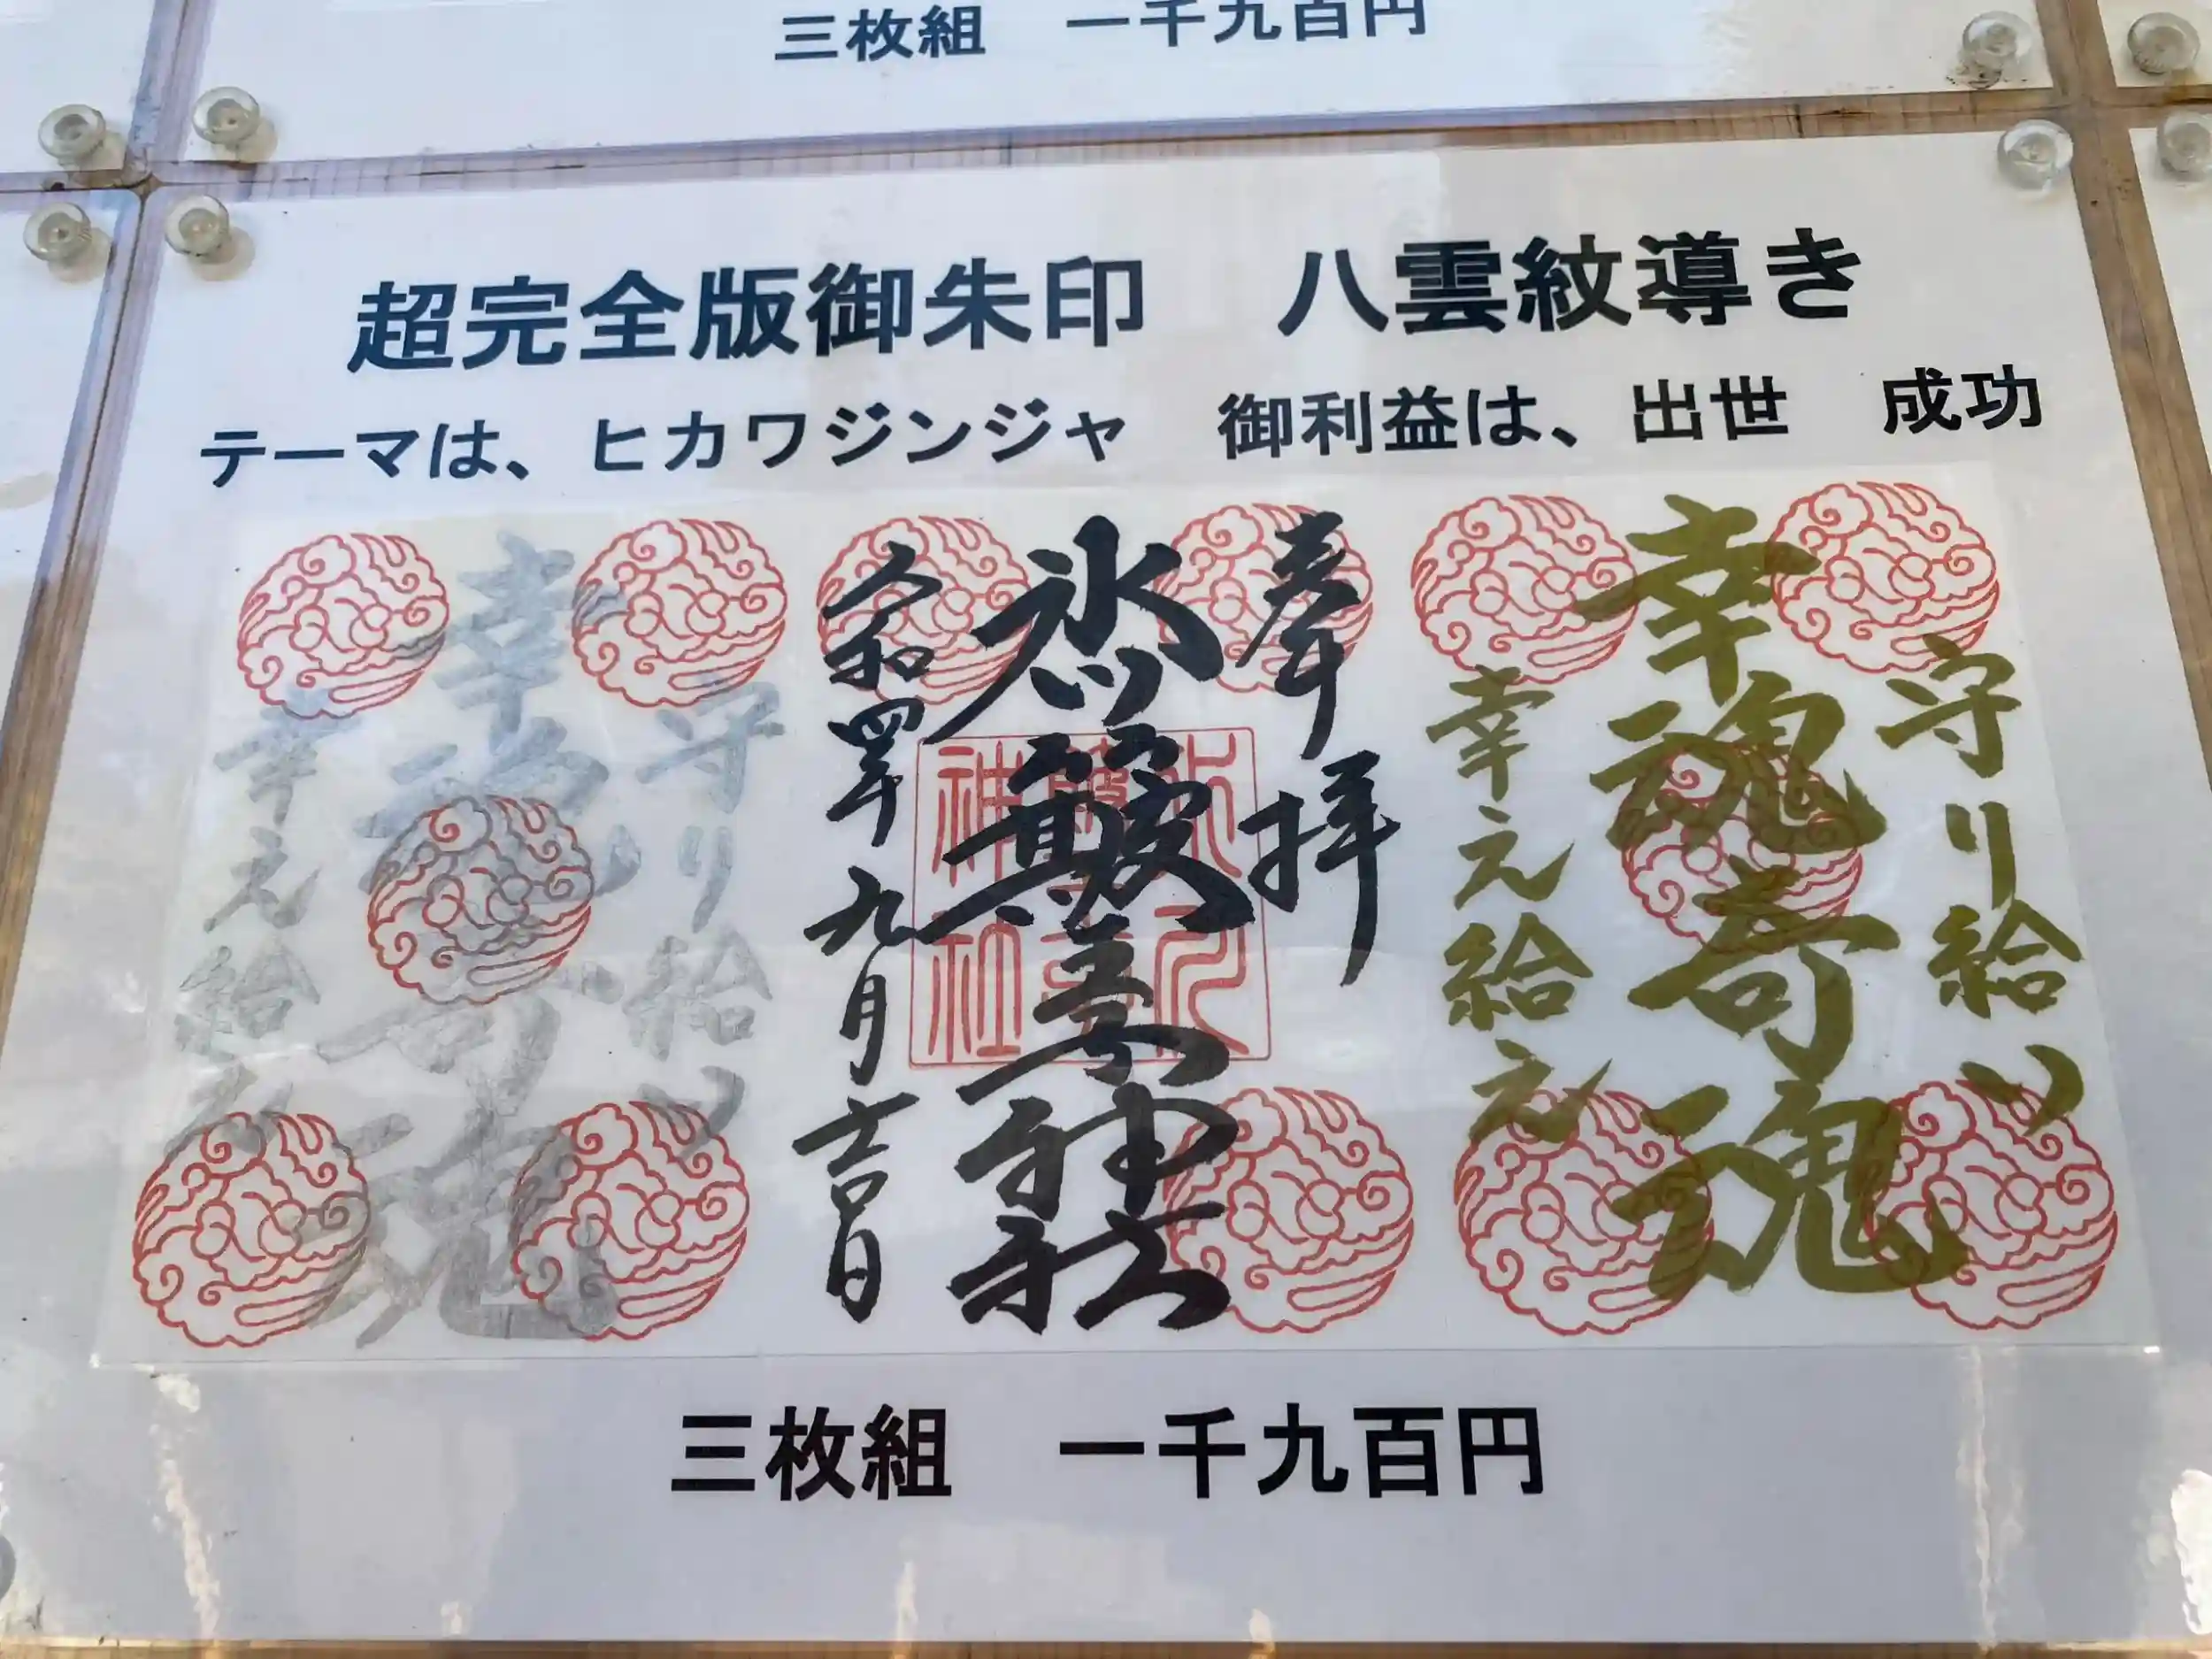 三枚組　一千九百円
超完全版御朱印　八雲紋導き
テーマは、ヒカワジンジャ　御利益は、出世　成功
守り給い
幸魂奇魂
幸え給え
奉拝
神社
令和四年九月吉日
守り給い
幸魂奇魂
幸え給え
三枚組　一千九百円